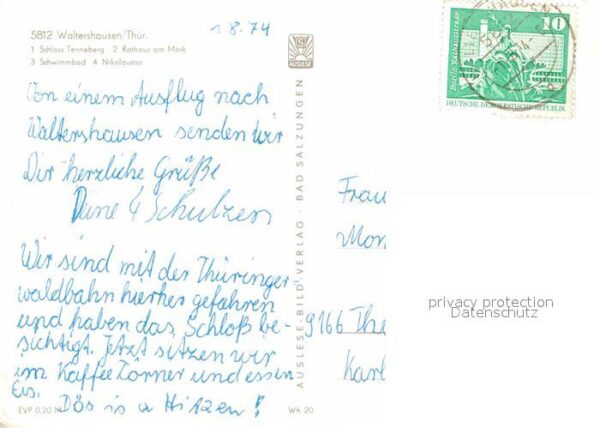 5812 Waltershausen/Thür.
1 Schloss Tenneberg 2 Rathaus am Markt
3 Schwimmbad 4 Nikolaustor
1.8.74
AUSLESE
Von einem Ausflug nach
Waltershausen senden wir
Dir herzliche Grüße
Deine 4 Schulzen
Wir sind mit der Thüringer-
waldbahn hierher gefahren
und haben das Schloß be-
sichtigt. Jetzt sitzen wir
im Kaffee Törner und essen
Eis. Dös is a Hitzen!
EVP 0,20 M
Wh 20
AUSLESE-BILD-VERLAG · BAD SALZUNGEN
10
Berlin, Rathausstraße
DEUTSCHE DEMOKRATISCHE REPUBLIK
Frau
Mon
9166 The
Karl
privacy protection
Datenschutz